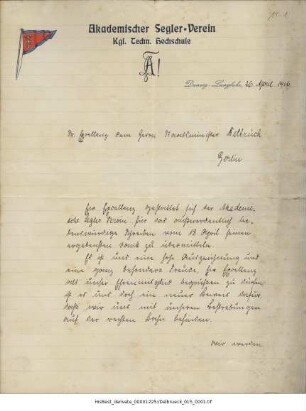 Akademischer Segler-Verein
Kgl. Techn. Hochschule
A!
Danzig-Langfuhr, 26. April 1916
Sr. Exzellenz dem Herrn Staatsminister Delbrück
Berlin
Ew. Exzellenz gestattet sich der Akademi-
sche Segler Verein für das außerordentlich lie-
benswürdige Schreiben vom 13. April seinen
ergebensten Dank zu übermitteln.
Es ist uns eine hohe Auszeichnung und
eine ganz besondere Freude, Ew. Exzellenz
als unser Ehrenmitglied begrüßen zu dürfen,
ist es uns doch ein neuer Beweis dafür,
daß wir uns mit unseren Bestrebungen
auf der rechten Bahn befinden.
Wir werden